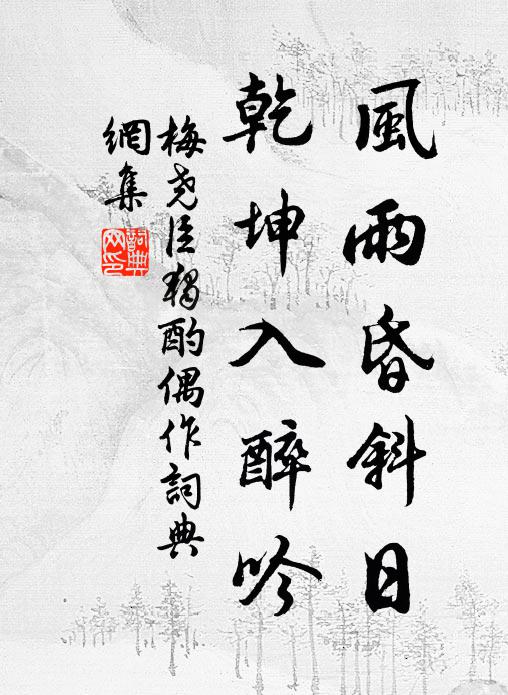 風雨昏斜日
乾坤入醉吟
梅堯臣獨酌偶作詞典
網集
詞典
网印